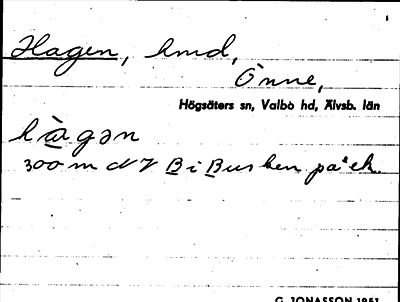 Hagen, hmd,
Önne,
Högsäters sn, Valbo hd, Älvsb. län
hàgən
300 m N V B i Busken på ek.
G. JONASSON 1951